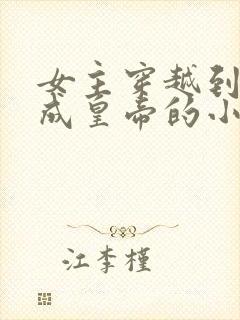 女主穿越到
成皇帝的小
江李槿